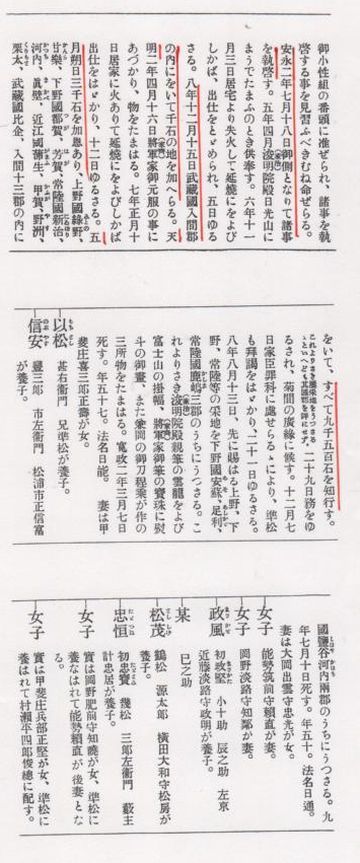 御小性組の番頭に准ぜられ、諸事を執
啓する事を見習ふべきむね命ぜらる。
安永二年七月十八日御側となりて諸事
を執啓す。五年四月浚明院殿日光山に
まうでたまふのとき供奉す。六年十一
月三日居宅より失火して延燒にをよび
しかば、出仕をとゞめられ、五日ゆる
さる。八年十二月十五日武藏國入間郡
の内にをいて千石の地を加へらる。天
明二年四月十六日將軍家御元服の事に
あづかり、物をたまはる。七年正月十
日居家に火ありて延燒にをよびしかば
出仕をはゞかり、十二日ゆるさる。五
月朔日三千石を加恩あり、上野國綠野、
甘樂、下野國都賀、芳賀、常陸國新治、
河内、眞壁、近江國蒲生、甲賀、野洲、
栗太、武藏國比企、入間十三郡の内に
をいて、すべて九千五百石を知行す。
二十九日務をゆ
るされ、菊間の廣緣に候す。十二月七
日家臣罪科に處せらるゝにより、準松
も拜謁をはゞかり、二十一日ゆるさる。
八年八月十三日、先に賜はる上野、下
野、常陸等の采地を下野國安蘇、足利、
常陸國鹿嶋三郡のうちにうつさる。こ
れよりさき浚明院殿親筆の雲龍をよび
富士山の掛幅、將軍家御筆の寶珠に熨
斗の御畫、また兼岡の御刀程乘が作の
三所物をたまはる。寬政二年三月七日
死す。年五十七。法名日能。 妻は甲
斐庄喜三郎正壽が女。
以松 甚右衞門 兄準松が養子。
信安 豐三郎 市左衞門 松浦市正信富
が養子。
國鹽谷河内兩郡のうちにうつさる。九
年七月十日死す。年五十。法名日通。
妻は大岡出雲守忠光が女。
女子 能勢筑前守賴直が妻。
女子 岡野淡路守知鄰が妻。
政風 初政堅 小十助 辰之助 左京
近藤淡路守政明が養子。
某 巳之助
松茂 鶴松 源太郎 橫田大和守松房が
養子。
忠恒 初忠寶 幾松 三郎左衞門 藪主
計忠居が養子。
女子 實は岡野肥前守知曉が女、準松に
養なはれて能勢賴直が後妻とな
る。
女子 實は甲斐庄兵部正堅が女、準松に
養はれて村瀨平四郎俊總に配す。